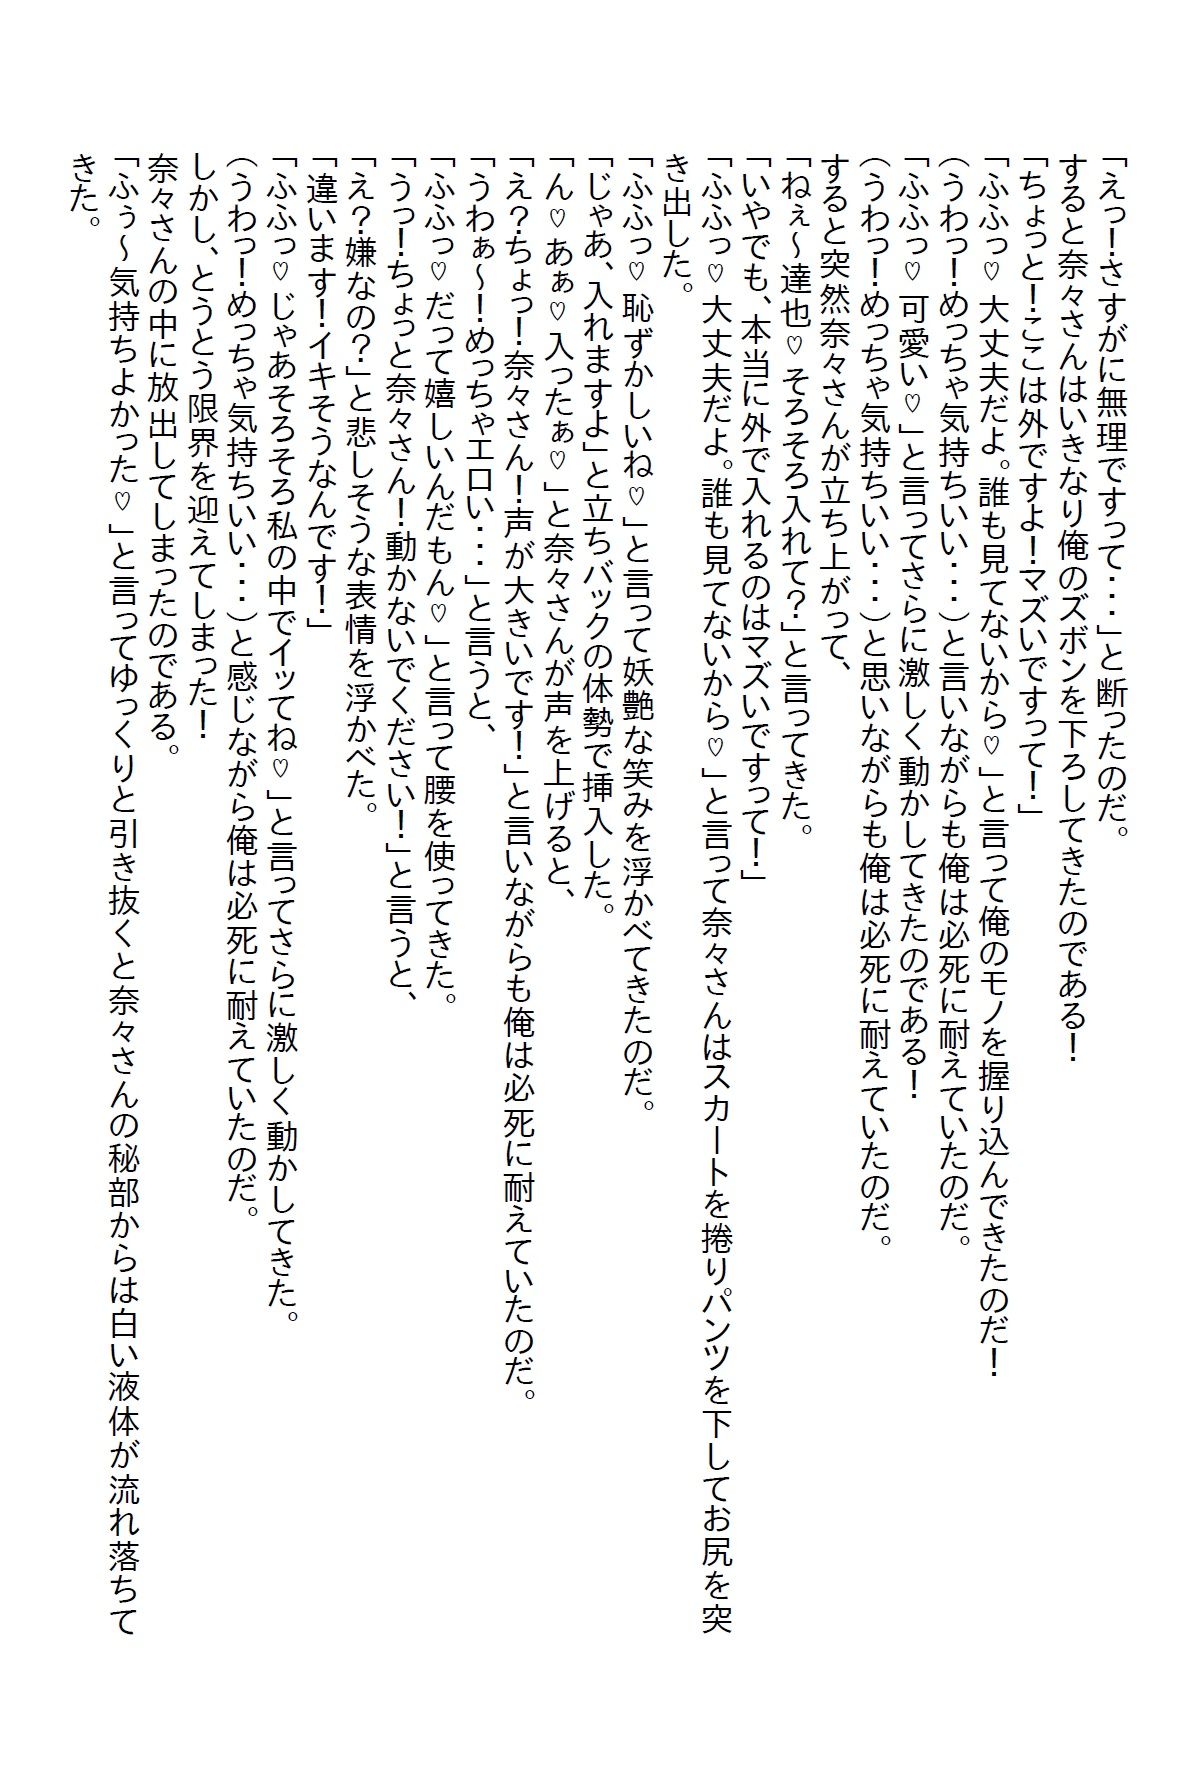 「えっ！さすがに無理ですって･･･」と断ったのだ。
すると奈々さんはいきなり俺のズボンを下ろしてきたのである！
「ちょっと！ここは外ですよ！マズいですって！」
「ふふっ♡大丈夫だよ。誰も見てないから♡」と言って俺のモノを握り込んできたのだ！
（うわっ！めっちゃ気持ちいい･･･）と言いながらも俺は必死に耐えていたのだ。
「ふふっ♡可愛い♡」と言ってさらに激しく動かしてきたのである！
（うわっ！めっちゃ気持ちいい･･･）と思いながらも俺は必死に耐えていたのだ。
すると突然奈々さんが立ち上がって、
「ねぇ～達也♡そろそろ入れて？」と言ってきた。
「いやでも、本当に外で入れるのはマズいですって！」
「ふふっ♡大丈夫だよ。誰も見てないから♡」と言って奈々さんはスカートを捲りパンツを下してお尻を突
き出した。
「ふふっ♡恥ずかしいね♡」と言って妖艶な笑みを浮かべてきたのだ。
「じゃあ、入れますよ」と立ちバックの体勢で挿入した。
「ん♡あぁ♡入ったぁ♡」と奈々さんが声を上げると、
「え？ちょっ！奈々さん！声が大きいです！」と言いながらも俺は必死に耐えていたのだ。
「うわぁ～！めっちゃエロい･･･」と言うと、
「ふふっ♡だって嬉しいんだもん♡」と言って腰を使ってきた。
「うっ！ちょっと奈々さん！動かないでください！」と言うと、
「え？嫌なの？」と悲しそうな表情を浮かべた。
「違います！イキそうなんです！」
「ふふっ♡じゃあそろそろ私の中でイッてね♡」と言ってさらに激しく動かしてきた。
（うわっ！めっちゃ気持ちいい･･･）と感じながら俺は必死に耐えていたのだ。
しかし、とうとう限界を迎えてしまった！
奈々さんの中に放出してしまったのである。
「ふぅ～気持ちよかった♡」と言ってゆっくりと引き抜くと奈々さんの秘部からは白い液体が流れ落ちて
きた。